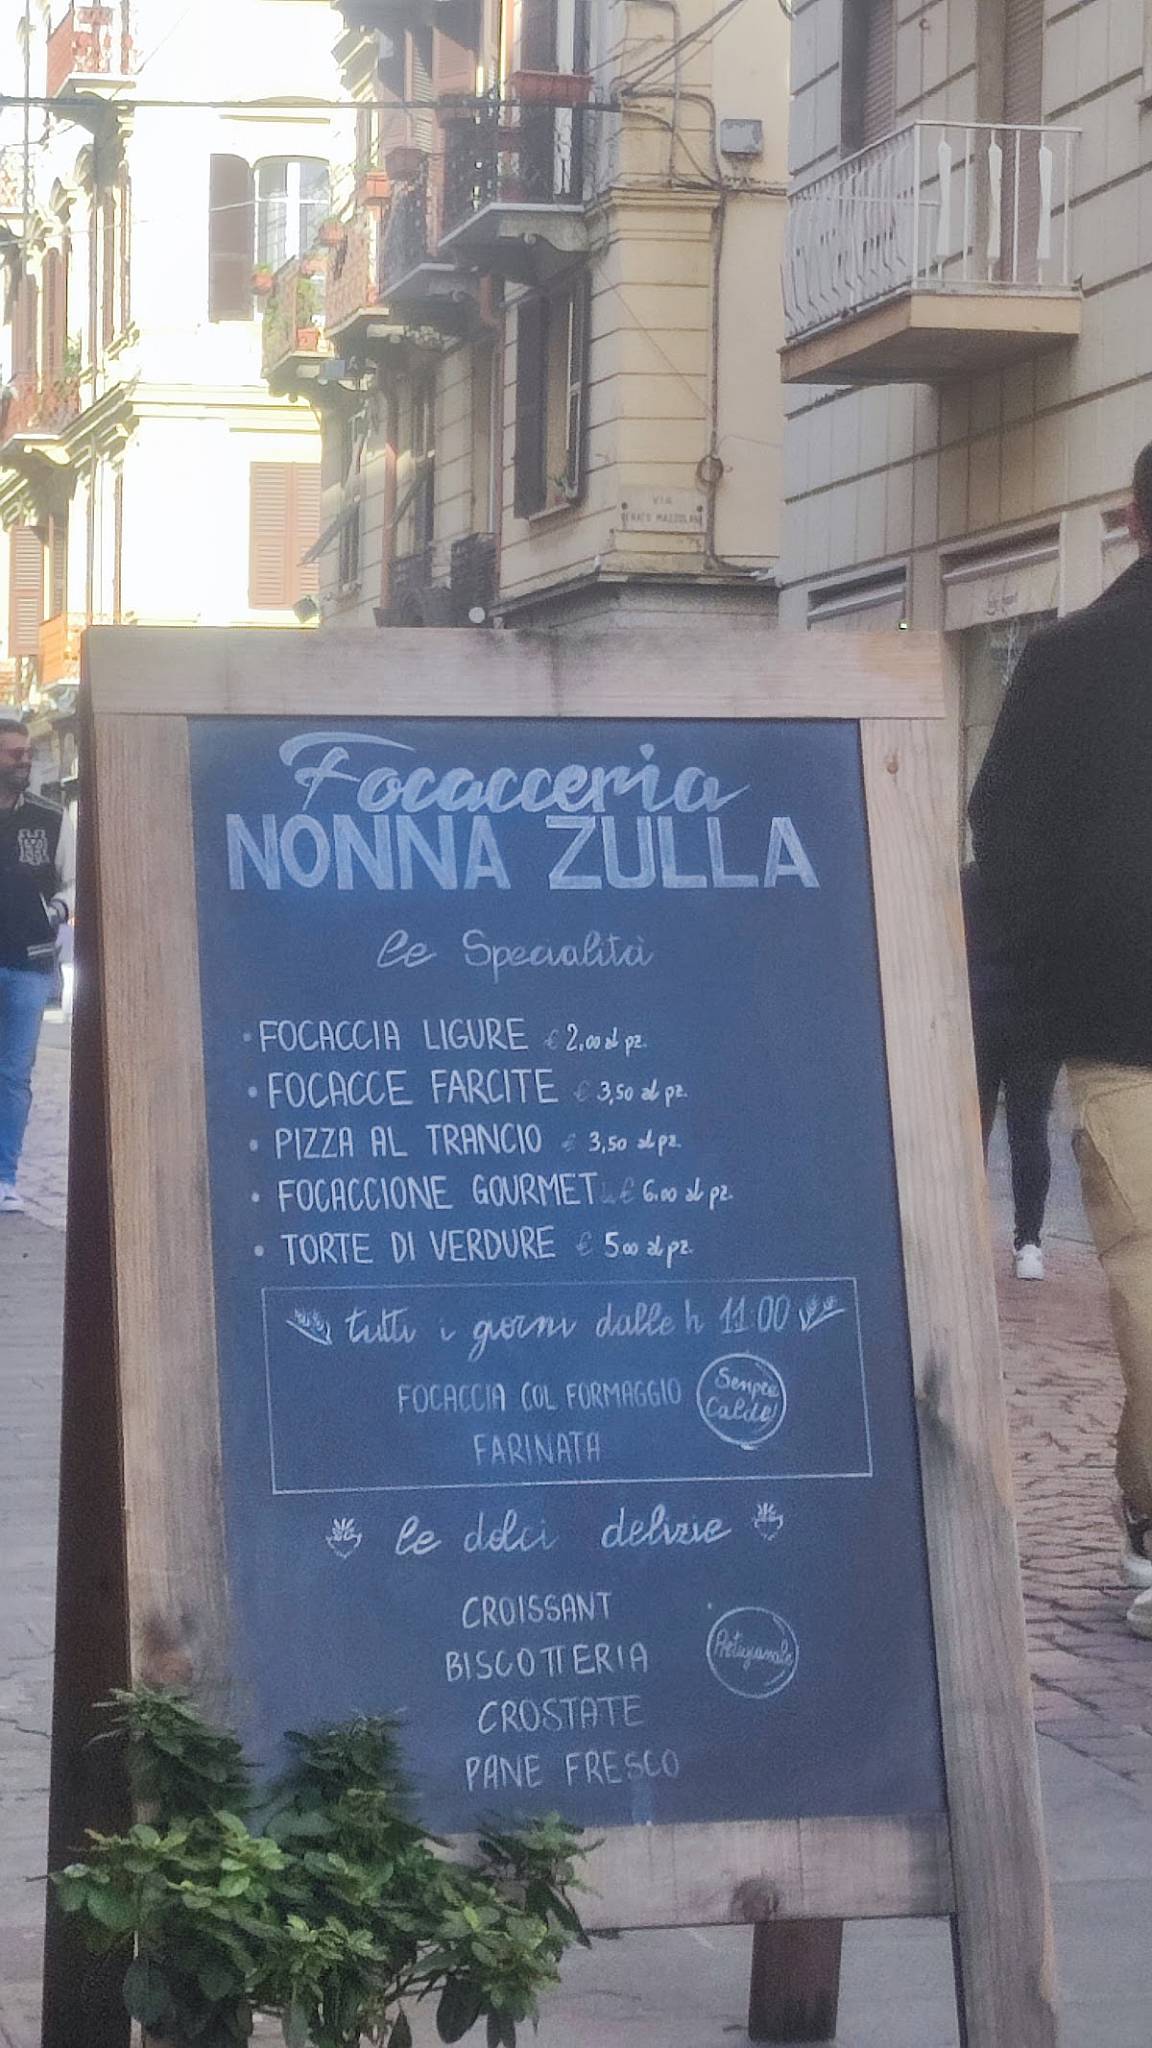 VIA
Focacceria
NONNA ZULLA
le Specialità
• FOCACCIA LIGURE € 2,00 al pz.
• FOCACCE FARCITE € 3,50 al pz.
• PIZZA AL TRANCIO € 3,50 al pz.
• FOCACCIONE GOURMET € 6.00 al pz.
• TORTE DI VERDURE € 5 00 al pz.
tutti i giorni dalle h 11.00
FOCACCIA COL FORMAGGIO
Sempre
Calde!
FARINATA
le dolci delizie
CROISSANT
BISCOTTERIA
Artigianale
CROSTATE
PANE FRESCO